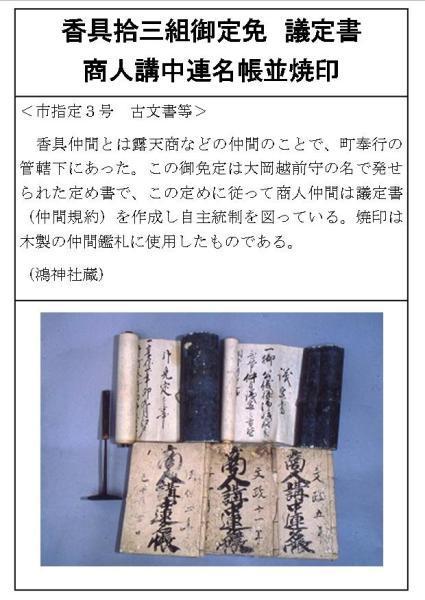 香具拾三組御定免　議定書
商人講中連名帳並焼印
＜市指定３号　古文書等＞
香具仲間とは露天商などの仲間のことで、町奉行の
管轄下にあった。この御免定は大岡越前守の名で発せ
られた定め書で、この定めに従って商人仲間は議定書
（仲間規約）を作成し自主統制を図っている。焼印は
木製の仲間鑑札に使用したものである。
（鴻神社蔵）
議定書
商人講中連名帳
文政十一年
商人講中連名帳
文政五年
商人講中連名帳